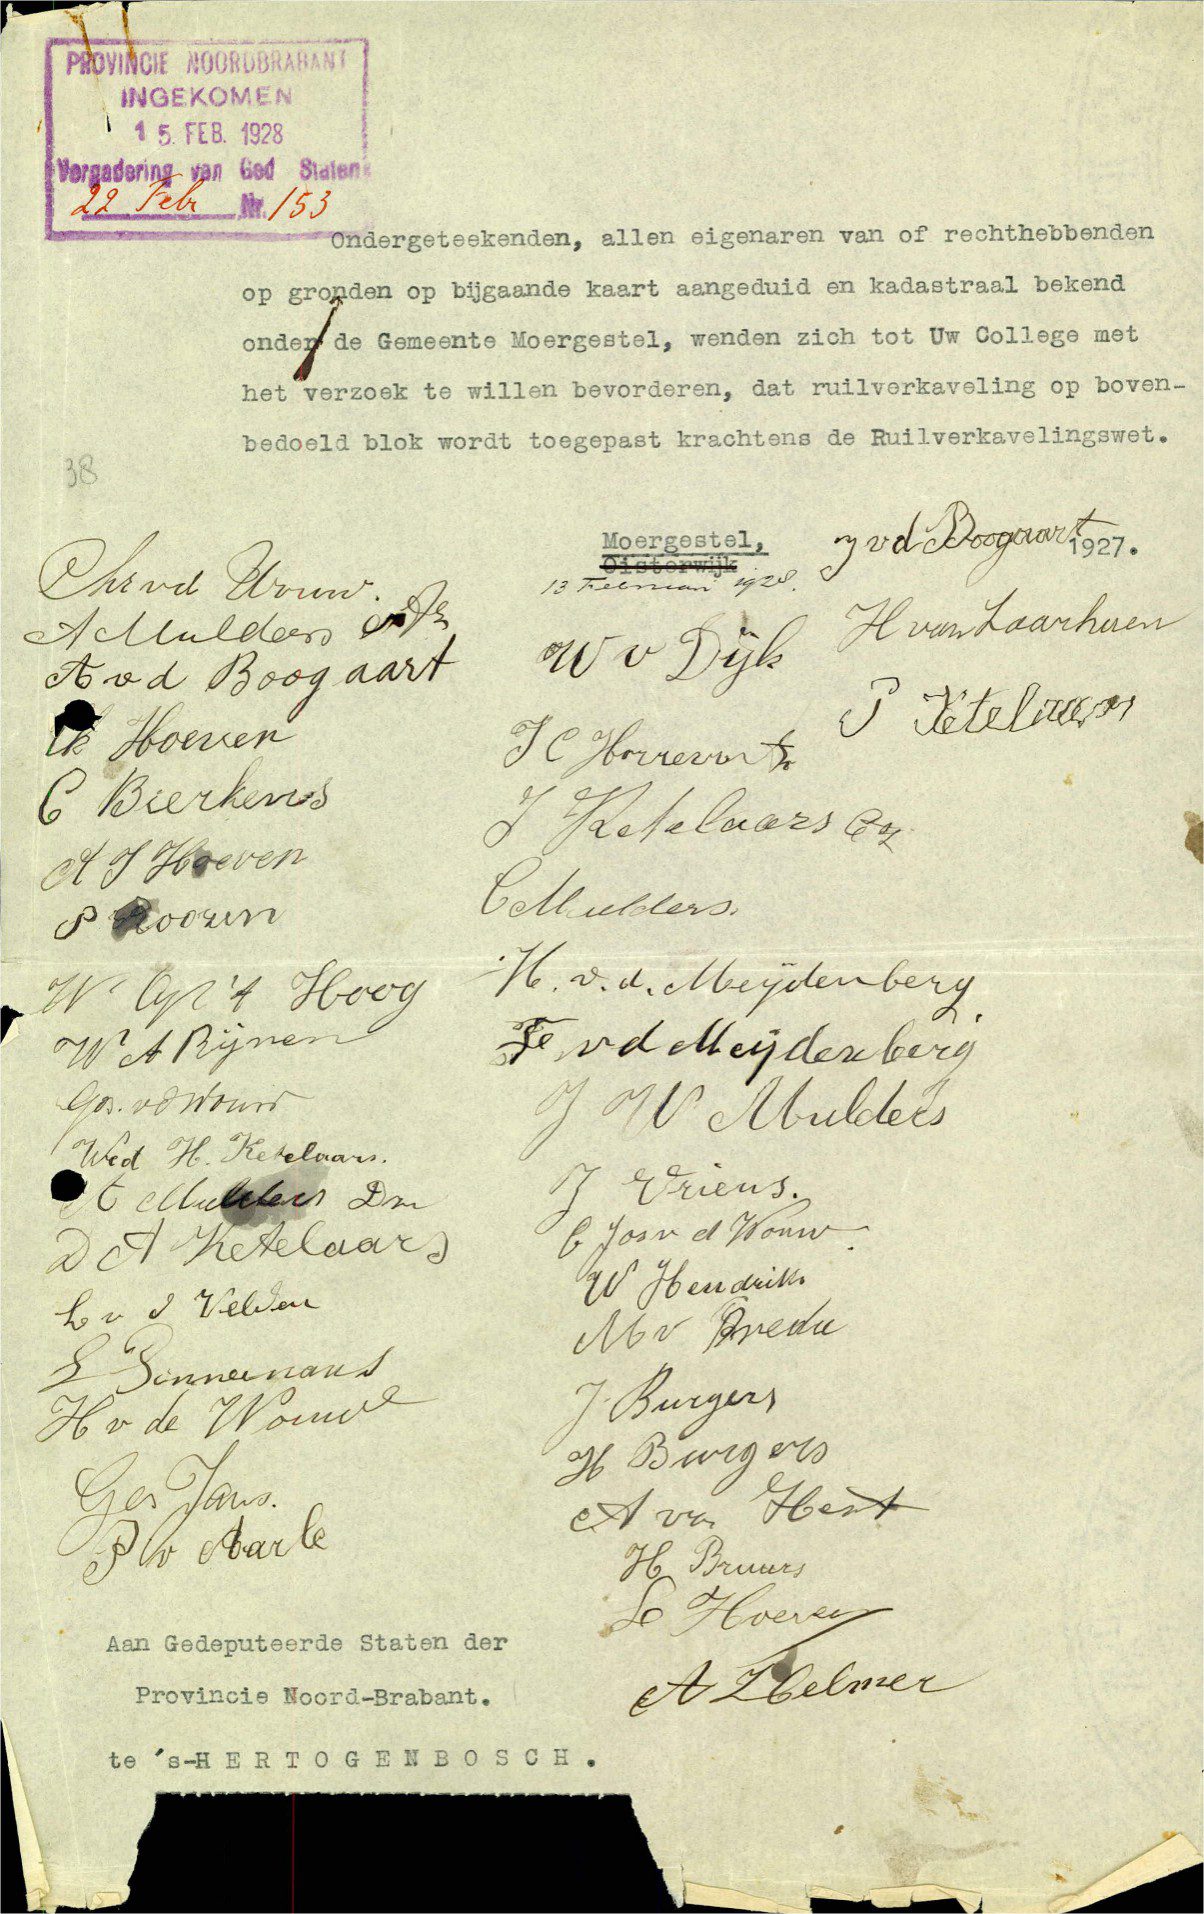 PROVINCIE NOORDBRABANT
INGEKOMEN
15. FEB. 1928
Vergadering van Ged Staten
22 Febr Nr. 153
Ondergeteekenden, allen eigenaren van of rechthebbenden
op gronden op bijgaande kaart aangeduid en kadastraal bekend
onder de Gemeente Moergestel, wenden zich tot Uw College met
het verzoek te willen bevorderen, dat ruilverkaveling op boven-
bedoeld blok wordt toegepast krachtens de Ruilverkavelingswet.
38
Moergestel,
Oisterwijk
1927.
13 Februari 1928.
Chr vd Wouw.
A Mulders
A v d Boogaart
Hoeven
C Bierkens
A J Hoeven
P Roozen
W 't Hoog
W A Rijnen
Wed H. Ketelaars.
A Mulders Dm
D A Ketelaars
L v d Velden
L Sinnemans
H v de Wouw
Ges Jans.
P v Aarle
W v Dijk
J C Horrevorts
J Ketelaars
C Mulders.
H. v. d. Meijdenberg
F v d Meijdenberg
J W Mulders
J Vriens.
C Jos v d Wouw
W Hendriks
M v Breda
J Burgers
H Burgers
A van Hest
H Bruurs
L Hoeven
A Helmer
J v d Boogaart
H van Laarhoven
P Ketelaars
Aan Gedeputeerde Staten der
Provincie Noord-Brabant.
te 's-HERTOGENBOSCH.